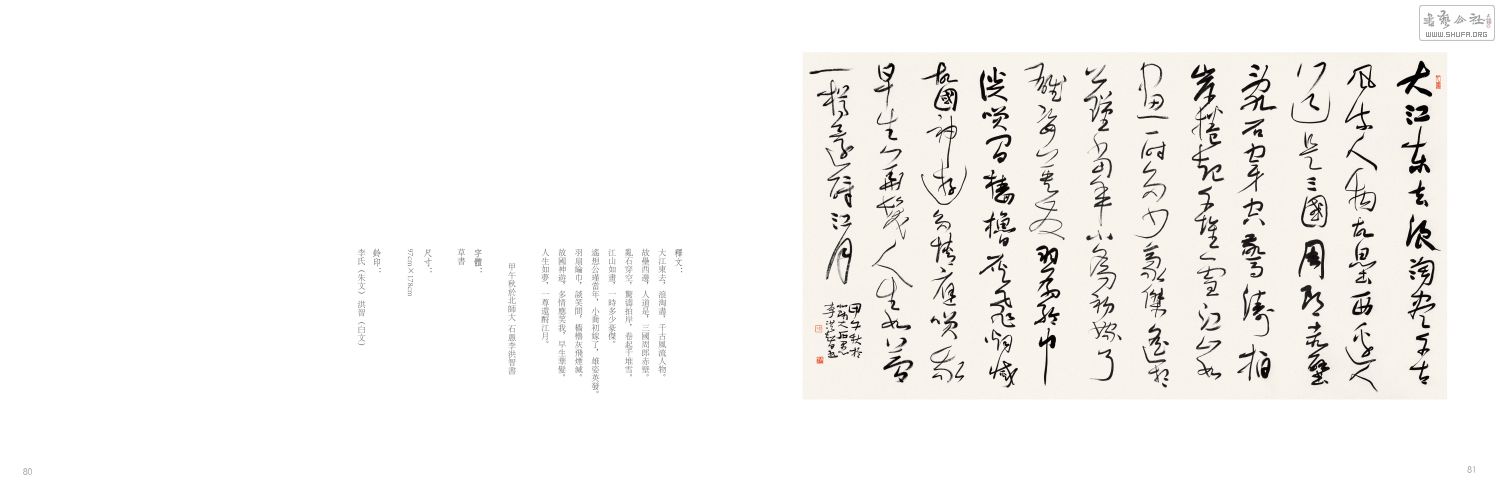 書藝公社
WWW.SHUFA.ORG
大江東去浪淘盡千古
風流人物故壘西邊人
道是三國周郎赤壁
亂石穿空驚濤拍
岸捲起千堆雪江山如
畫一時多少豪傑遙想
公瑾當年小喬初嫁了
雄姿英發羽扇綸巾
談笑間檣櫓灰飛煙滅
故國神遊多情應笑我
早生華髮人生如夢
一樽還酹江月
甲午秋於
北師大石愚
李洪智書
釋文：
大江東去，浪淘盡，千古風流人物。
故壘西邊，人道是，三國周郎赤壁。
亂石穿空，驚濤拍岸，卷起千堆雪。
江山如畫，一時多少豪傑。
遙想公瑾當年，小喬初嫁了，雄姿英發。
羽扇綸巾，談笑間，檣櫓灰飛煙滅。
故國神遊，多情應笑我，早生華髮。
人生如夢，一尊還酹江月。
甲午秋於北師大 石愚李洪智書
字體：
草書
尺寸：
97cm×178cm
鈐印：
李氏（朱文） 洪智（白文）
80
81